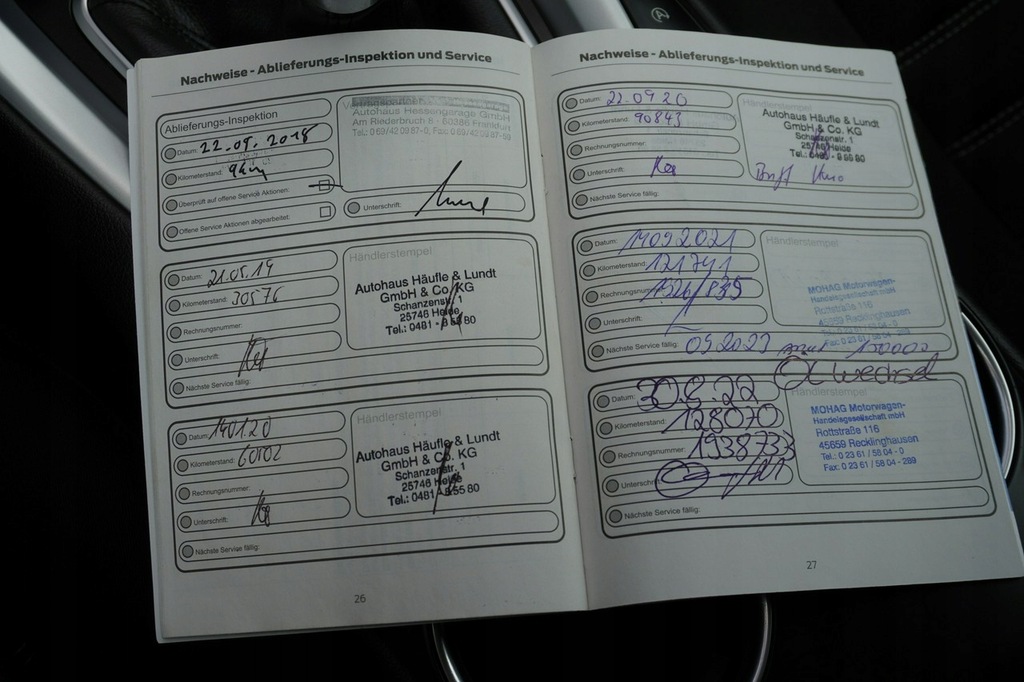 Nachweise - Ablieferungs-Inspektion und Service
Ablieferungs-Inspektion
Datum: 22.05.2018
Kilometerstand: 9 km
Überprüft auf offene Service Aktionen:
Offene Service Aktionen abgearbeitet:
Autohaus Hessengarage GmbH
Am Riederbruch 8 - 60386 Frankfurt
Unterschrift:
Datum: 21.05.19
Kilometerstand: 30576
Rechnungsnummer:
Unterschrift:
Nächste Service fällig:
Händlerstempel
Autohaus Häufle & Lundt
GmbH & Co. KG
Schanzenstr. 1
25746 Heide
Tel.: 0481 - 8 55 80
Datum: 140120
Kilometerstand: 60102
Rechnungsnummer:
Unterschrift:
Nächste Service fällig:
Händlerstempel
Autohaus Häufle & Lundt
GmbH & Co. KG
Schanzenstr. 1
25746 Heide
Tel.: 0481 - 8 55 80
26
Nachweise - Ablieferungs-Inspektion und Service
Datum: 22.09.20
Kilometerstand: 90843
Rechnungsnummer:
Unterschrift:
Nächste Service fällig:
Händlerstempel
Autohaus Häufle & Lundt
GmbH & Co. KG
Schanzenstr. 1
25746 Heide
Tel.: 0481 - 8 55 80
Datum: 14092021
Kilometerstand: 121741
Rechnungsnummer: 1326/835
Unterschrift:
Nächste Service fällig: 092023 150000
Händlerstempel
MOHAG Motorwagen-
Handelsgesellschaft mbH
Rottstraße 116
45659 Recklinghausen
Tel. 0 23 61 / 58 04 - 0
Fax: 0 23 61 / 58 04 - 299
Öl wechsel
Datum: 30.6.22
Kilometerstand: 128070
Rechnungsnummer: 1938733
Unterschrift:
Nächste Service fällig:
Händlerstempel
MOHAG Motorwagen-
Handelsgesellschaft mbH
Rottstraße 116
45659 Recklinghausen
Tel. 0 23 61 / 58 04 - 0
Fax: 0 23 61 / 58 04 - 299
27